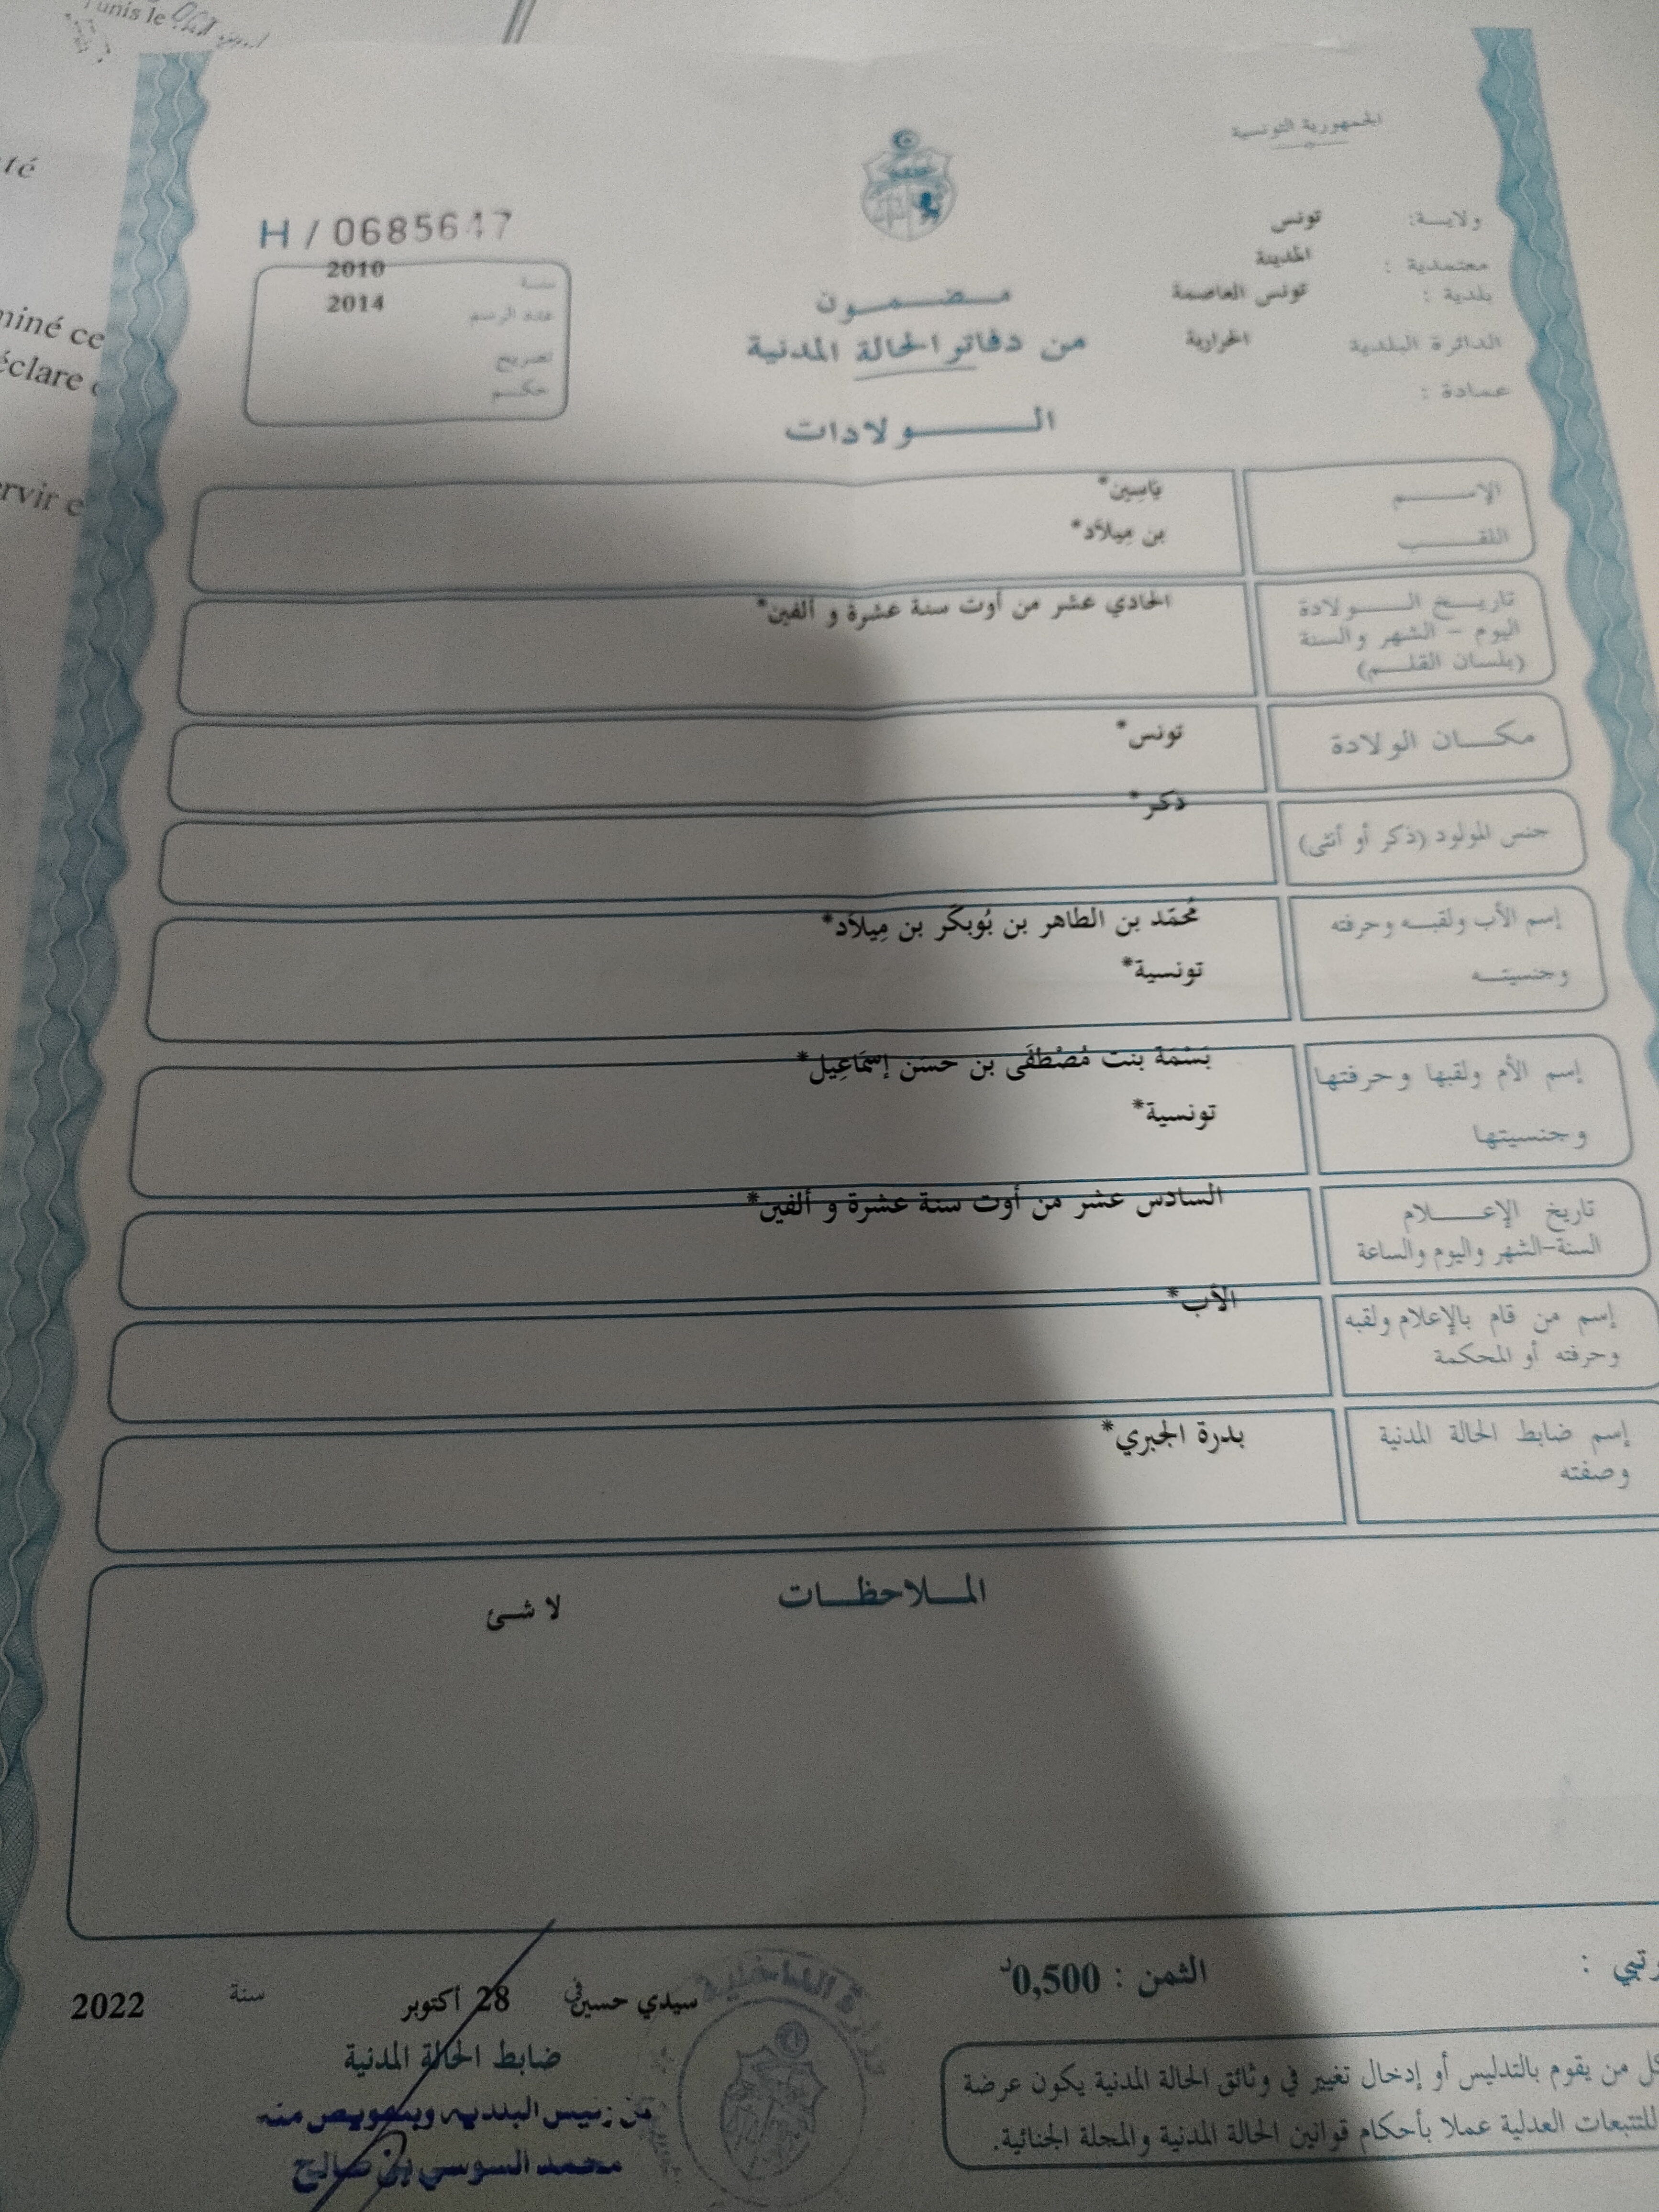 Tunis le
الجمهورية التونسية
ولايـة: تونس
معتمدية : المدينة
بلدية : تونس العاصمة
الدائرة البلدية الحرايرية
عمادة :
H / 0685647
سنة 2010
عدد الرسم 2014
تصريح
حكم
مضمون
من دفاتر الحالة المدنية
الولادات
الإسم يَاسِين*
اللقب بن مِيلاَد*
تاريخ الولادة الحادي عشر من أوت سنة عشرة و ألفين*
اليوم - الشهر والسنة
(بلسان القلم)
مكان الولادة تونس*
جنس المولود (ذكر أو أنثى) ذكر*
إسم الأب ولقبه وحرفته مُحمّد بن الطاهر بن بُوبكَر بن مِيلاَد*
وجنسيته تونسية*
إسم الأم ولقبها وحرفتها بَسْمَة بنت مُصْطفَى بن حسَن إسْمَاعِيل*
وجنسيتها تونسية*
تاريخ الإعلام السادس عشر من أوت سنة عشرة و ألفين*
السنة-الشهر واليوم والساعة
إسم من قام بالإعلام ولقبه الأب*
وحرفته أو المحكمة
إسم ضابط الحالة المدنية بدرة الجبري*
وصفته
الملاحظات
لا شئ
الثمن : 0,500د
سيدي حسين في 28 أكتوبر سنة 2022
ضابط الحالة المدنية
عن رئيس البلدية وبتفويض منه
محمد السوسي بن صالح
وزارة الداخلية
كل من يقوم بالتدليس أو إدخال تغيير في وثائق الحالة المدنية يكون عرضة
للتتبعات العدلية عملا بأحكام قوانين الحالة المدنية والمجلة الجنائية.
té
miné ce
éclare
ervir e